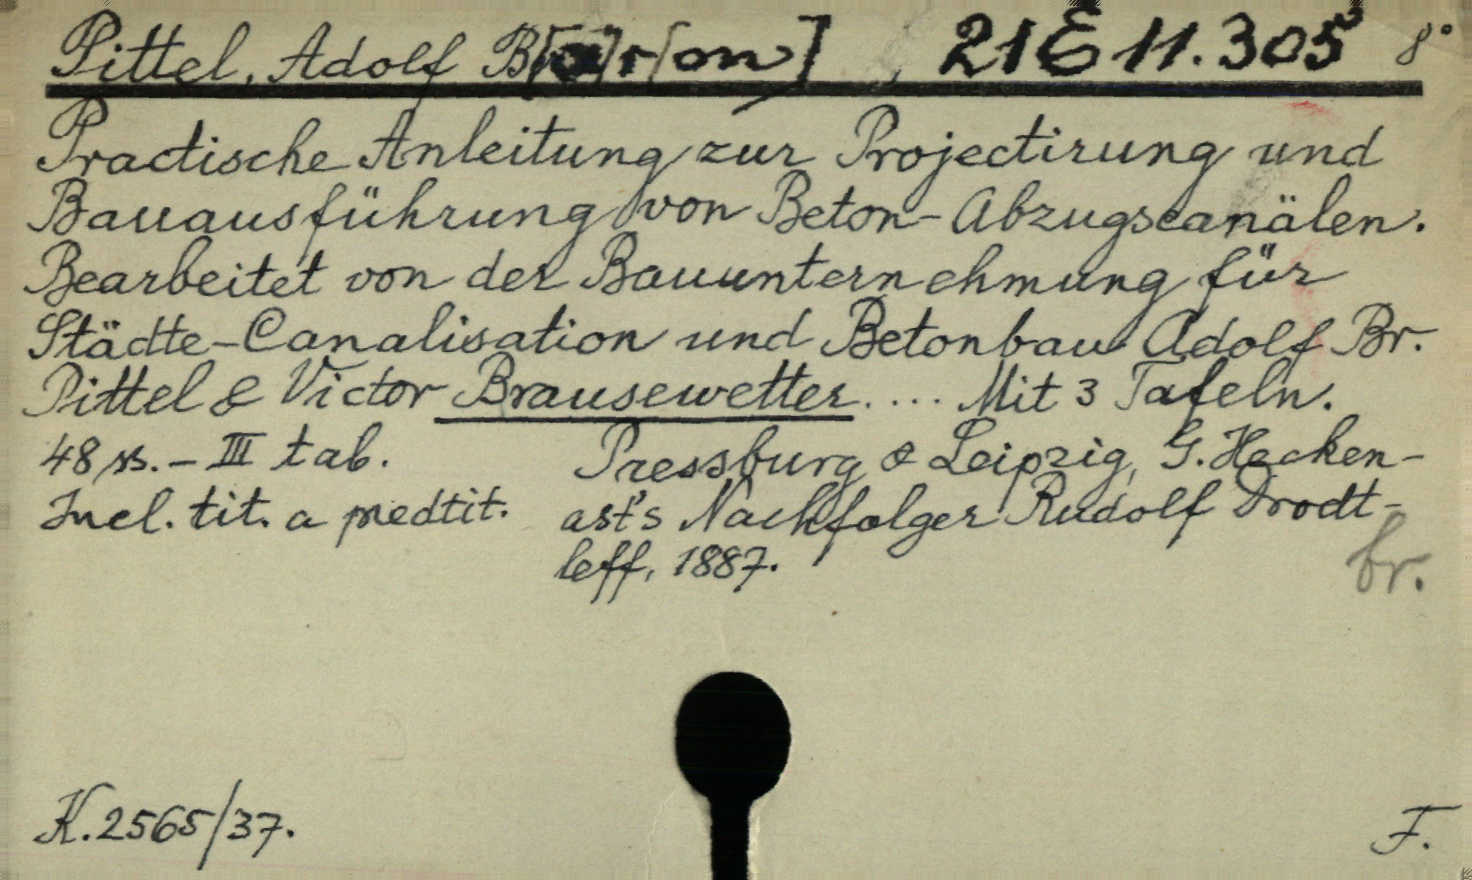 Pittel, Adolf B[a]r[on], 21 E 11.305 8°
Practische Anleitung zur Projectirung und
Bauausführung von Beton-Abzugscanälen.
Bearbeitet von der Bauunternehmung für
Städte-Canalisation und Betonbau Adolf Br.
Pittel & Victor Brausewetter. ... Mit 3 Tafeln.
48 ss. - III tab. Pressburg & Leipzig, G. Hecken-
Incl. tit. a predtit. ast's Nachfolger Rudolf Drodt-
leff, 1887.
br.
K. 2565/37. F.